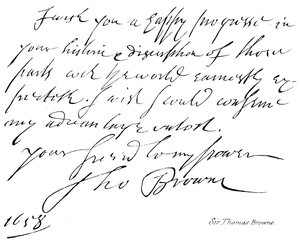 I wish you a happy progresse in
your historie & discription of those
parts wch ye world earnestly ex-
pecteth. I wish I could
my
your friend to my power
Tho Browne
1658
Sir Thomas Browne.